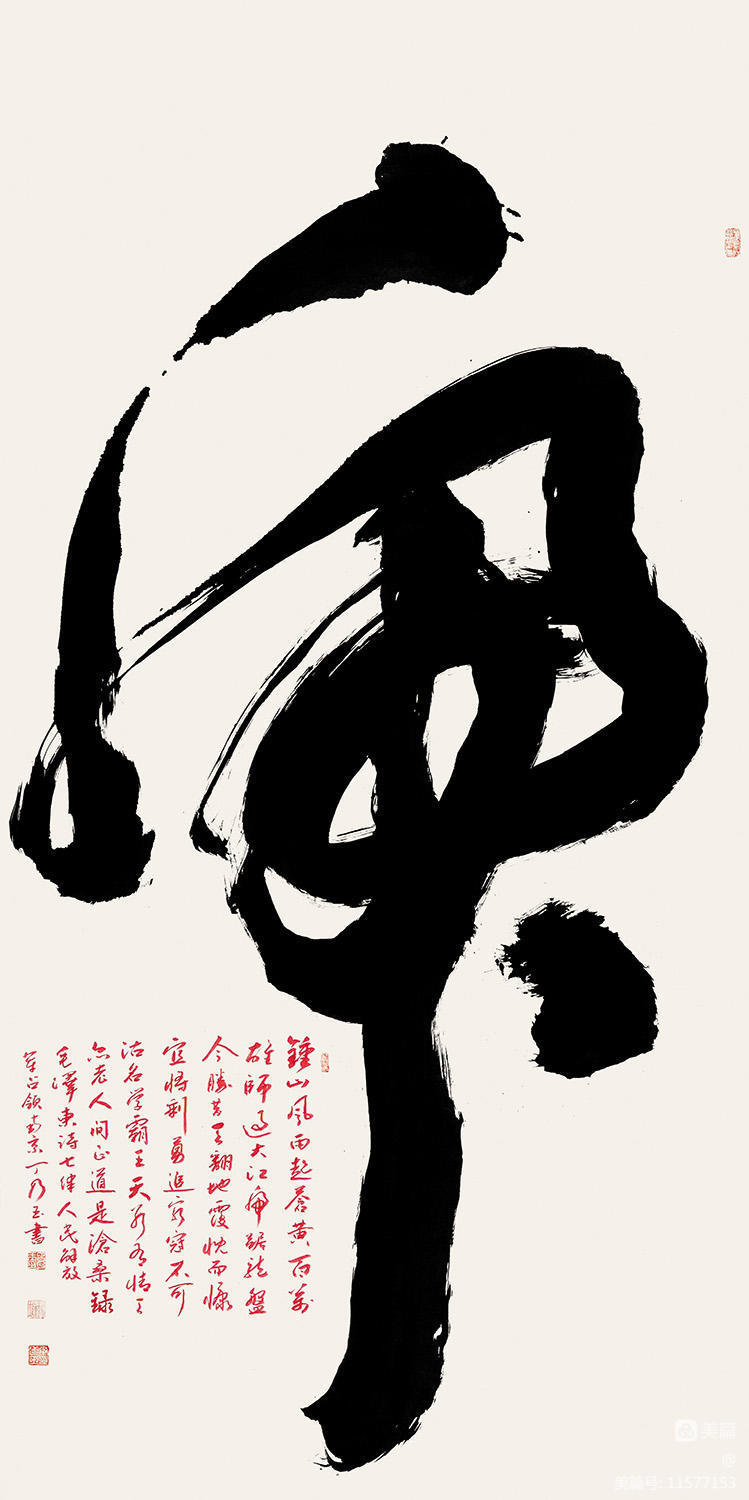 虎
鍾山風雨起蒼黃百萬
雄師過大江虎踞龍盤
今勝昔天翻地覆慨而慷
宜將剩勇追窮寇不可
沽名学霸王天若有情天
亦老人間正道是滄桑錄
毛澤東詩七律人民解放
軍占領南京丁乃玉書
美篇
@
美篇号: 11577153